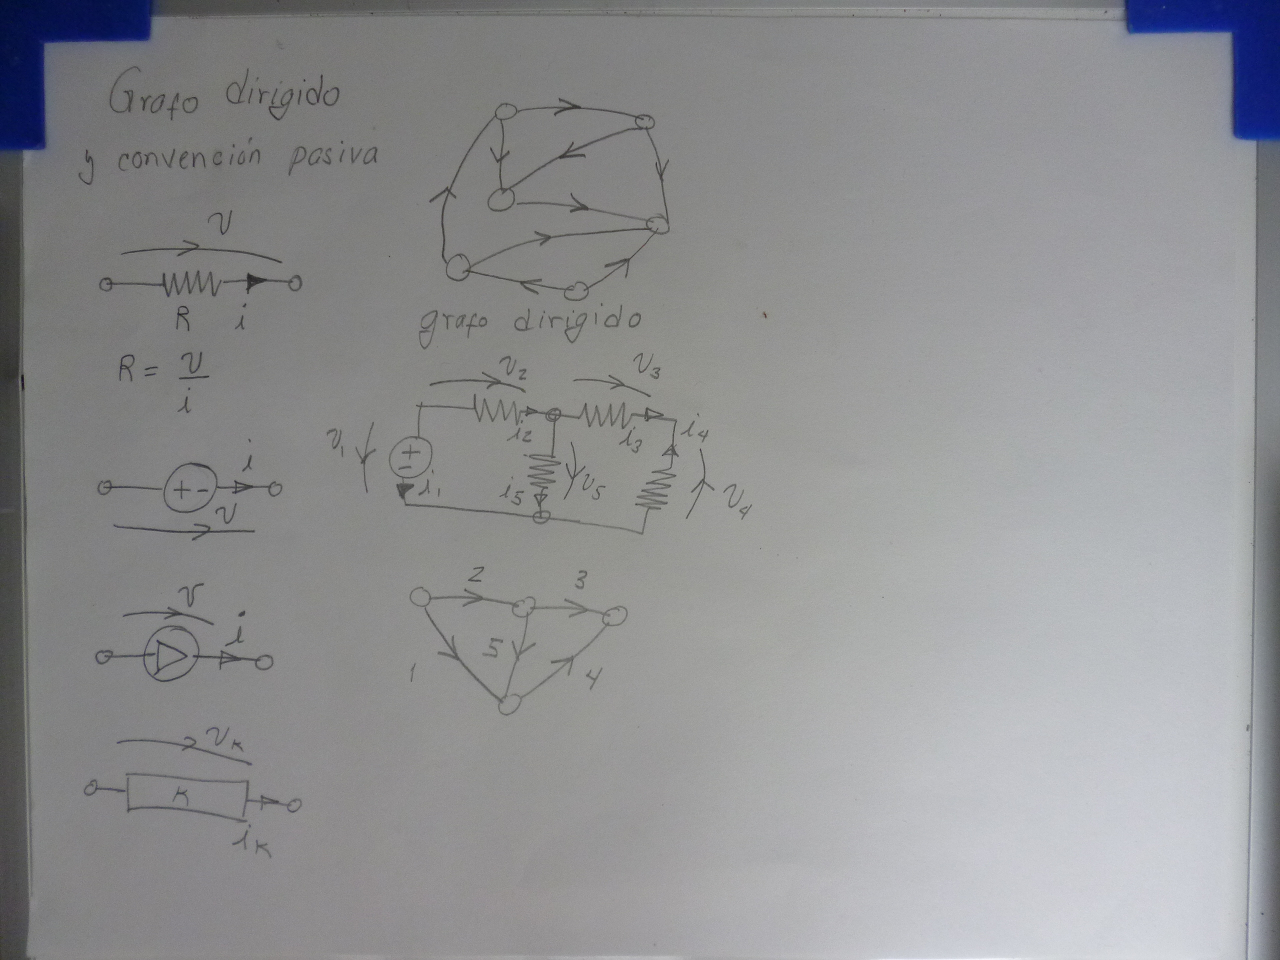 Grafo dirigido
y convención pasiva
v
R i
R = v/i
+ - i
v
v
i
v_k
k
i_k
grafo dirigido
v_2 v_3
v_1 + - i_1 i_2 i_3 i_4
i_5 v_5 v_4
2 3
1 5 4